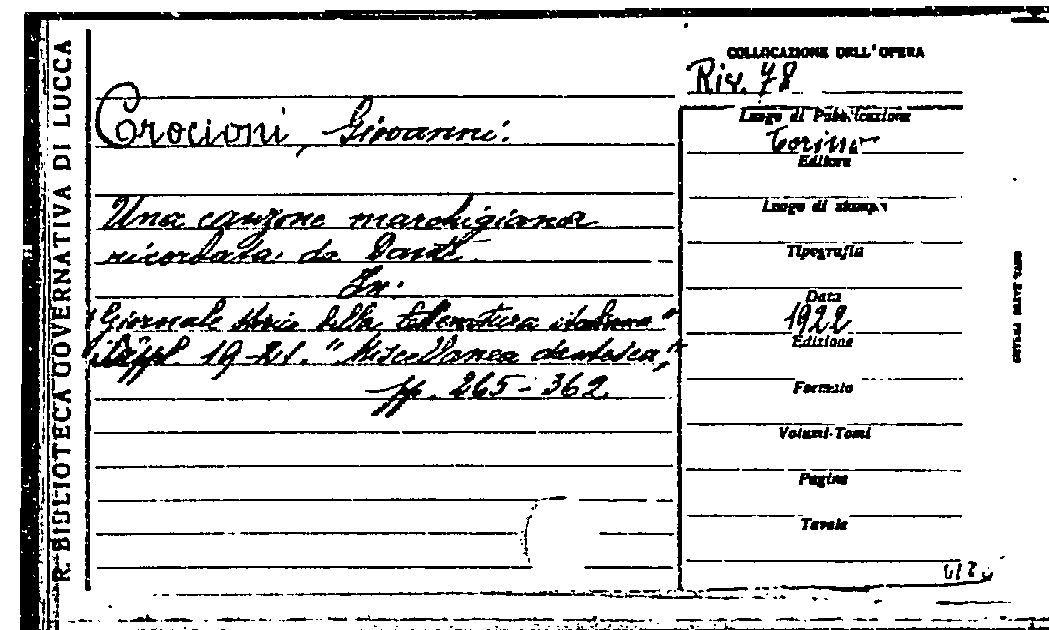 R. BIBLIOTECA GOVERNATIVA DI LUCCA
COLLOCAZIONE DELL'OPERA
Riv. 78
Crocioni, Giovanni.
Una canzone marchigiana
ricordata da Dante.
In:
"Giornale storico della letteratura italiana"
Suppl. 19-21. "Miscellanea dantesca,"
pp. 265-362.
Luogo di Pubblicazione
Torino
Editore
Luogo di stampa
Tipografia
Data
1922
Edizione
Formato
Volumi-Tomi
Pagine
Tavole